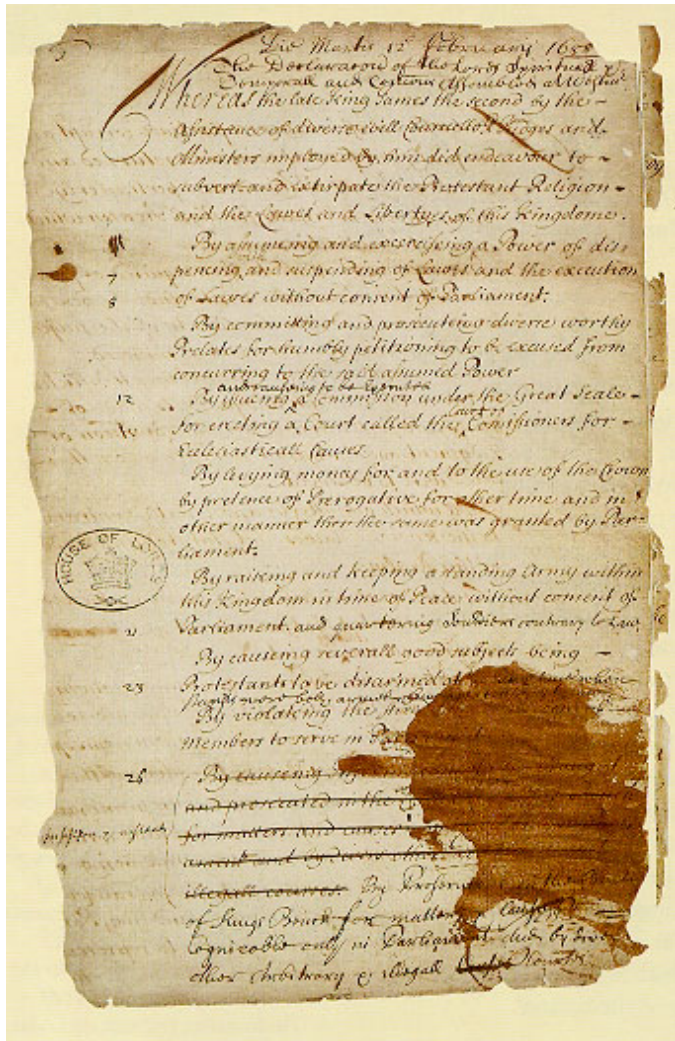 Die Martis 12º February 1688
The Declaration of the Lords Spirituall &
Temporall and Comons Assembled at Westmr
Whereas the late King James the second by the
Assistance of diverse evill Councellors Judges and
Ministers imployed by him did endeavour to
subvert and extirpate the Protestant Religion
and the Lawes and Liberties of this Kingdome.
By assumeing and exerciseing a Power of dis-
7 penceing and suspending of Lawes and the execution
8 of Lawes without consent of Parliament.
By committing and prosecuteing diverse worthy
Prelates for humbly petitioning to be excused from
concurring to the said assumed Power
and causing to be executed
12 By issueing a Commission under the Great Seale
for erecting a Court called the Court of Comissioners for
Eclesiasticall Causes
By levying money for and to the use of the Crown
by pretence of Prerogative for other time and in
other manner then the same was granted by Par-
liament.
HOUSE OF LORDS
By raiseing and keeping a standing Army within
this Kingdom in time of Peace without consent of
21 Parliament and quartering Souldiers contrary to Law
By causeing severall good subjects being
23 Protestants to be disarmed at
Papists were both armed
By violateing the
Members to serve in
26 By causeing
and prosecuted in the
for matters and causes
and by divers other
illegall courses. By
of Kings Bench for matters & causes
cognizable only in Parliament and by divers
other Arbitrary & illegall Courses